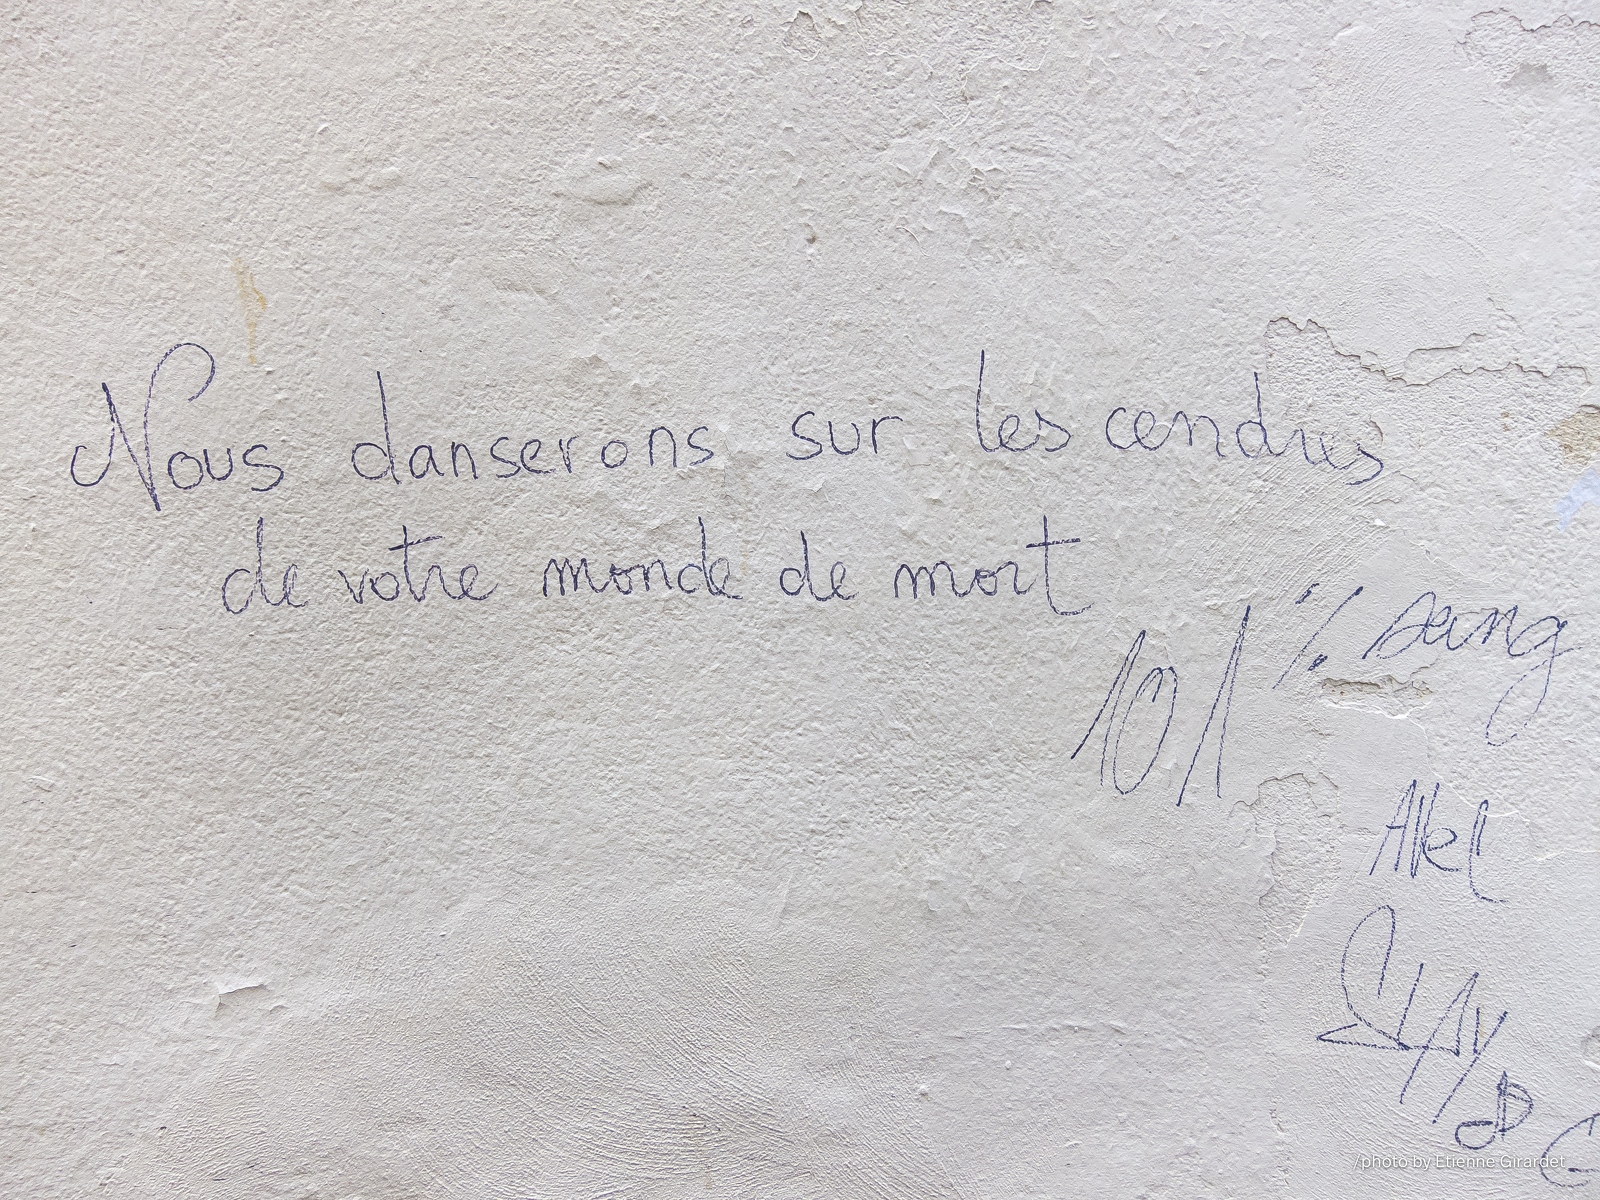 Nous danserons sur les cendres
de votre monde de mort
101 % sang
/photo by Etienne Girardet